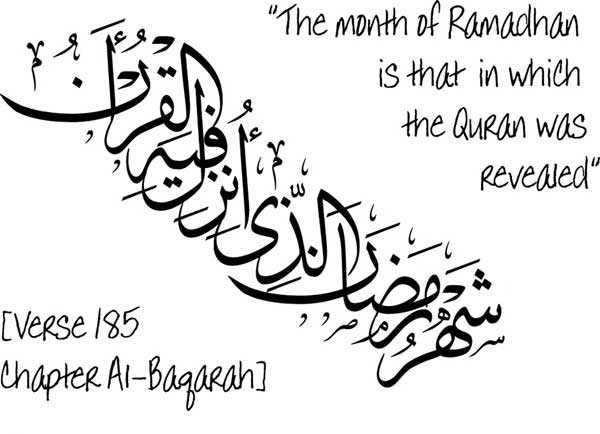 "The month of Ramadhan
is that in which
the Quran was
revealed"
شهر رمضان الذي أنزل فيه القرأن
[Verse 185
Chapter Al-Baqarah]